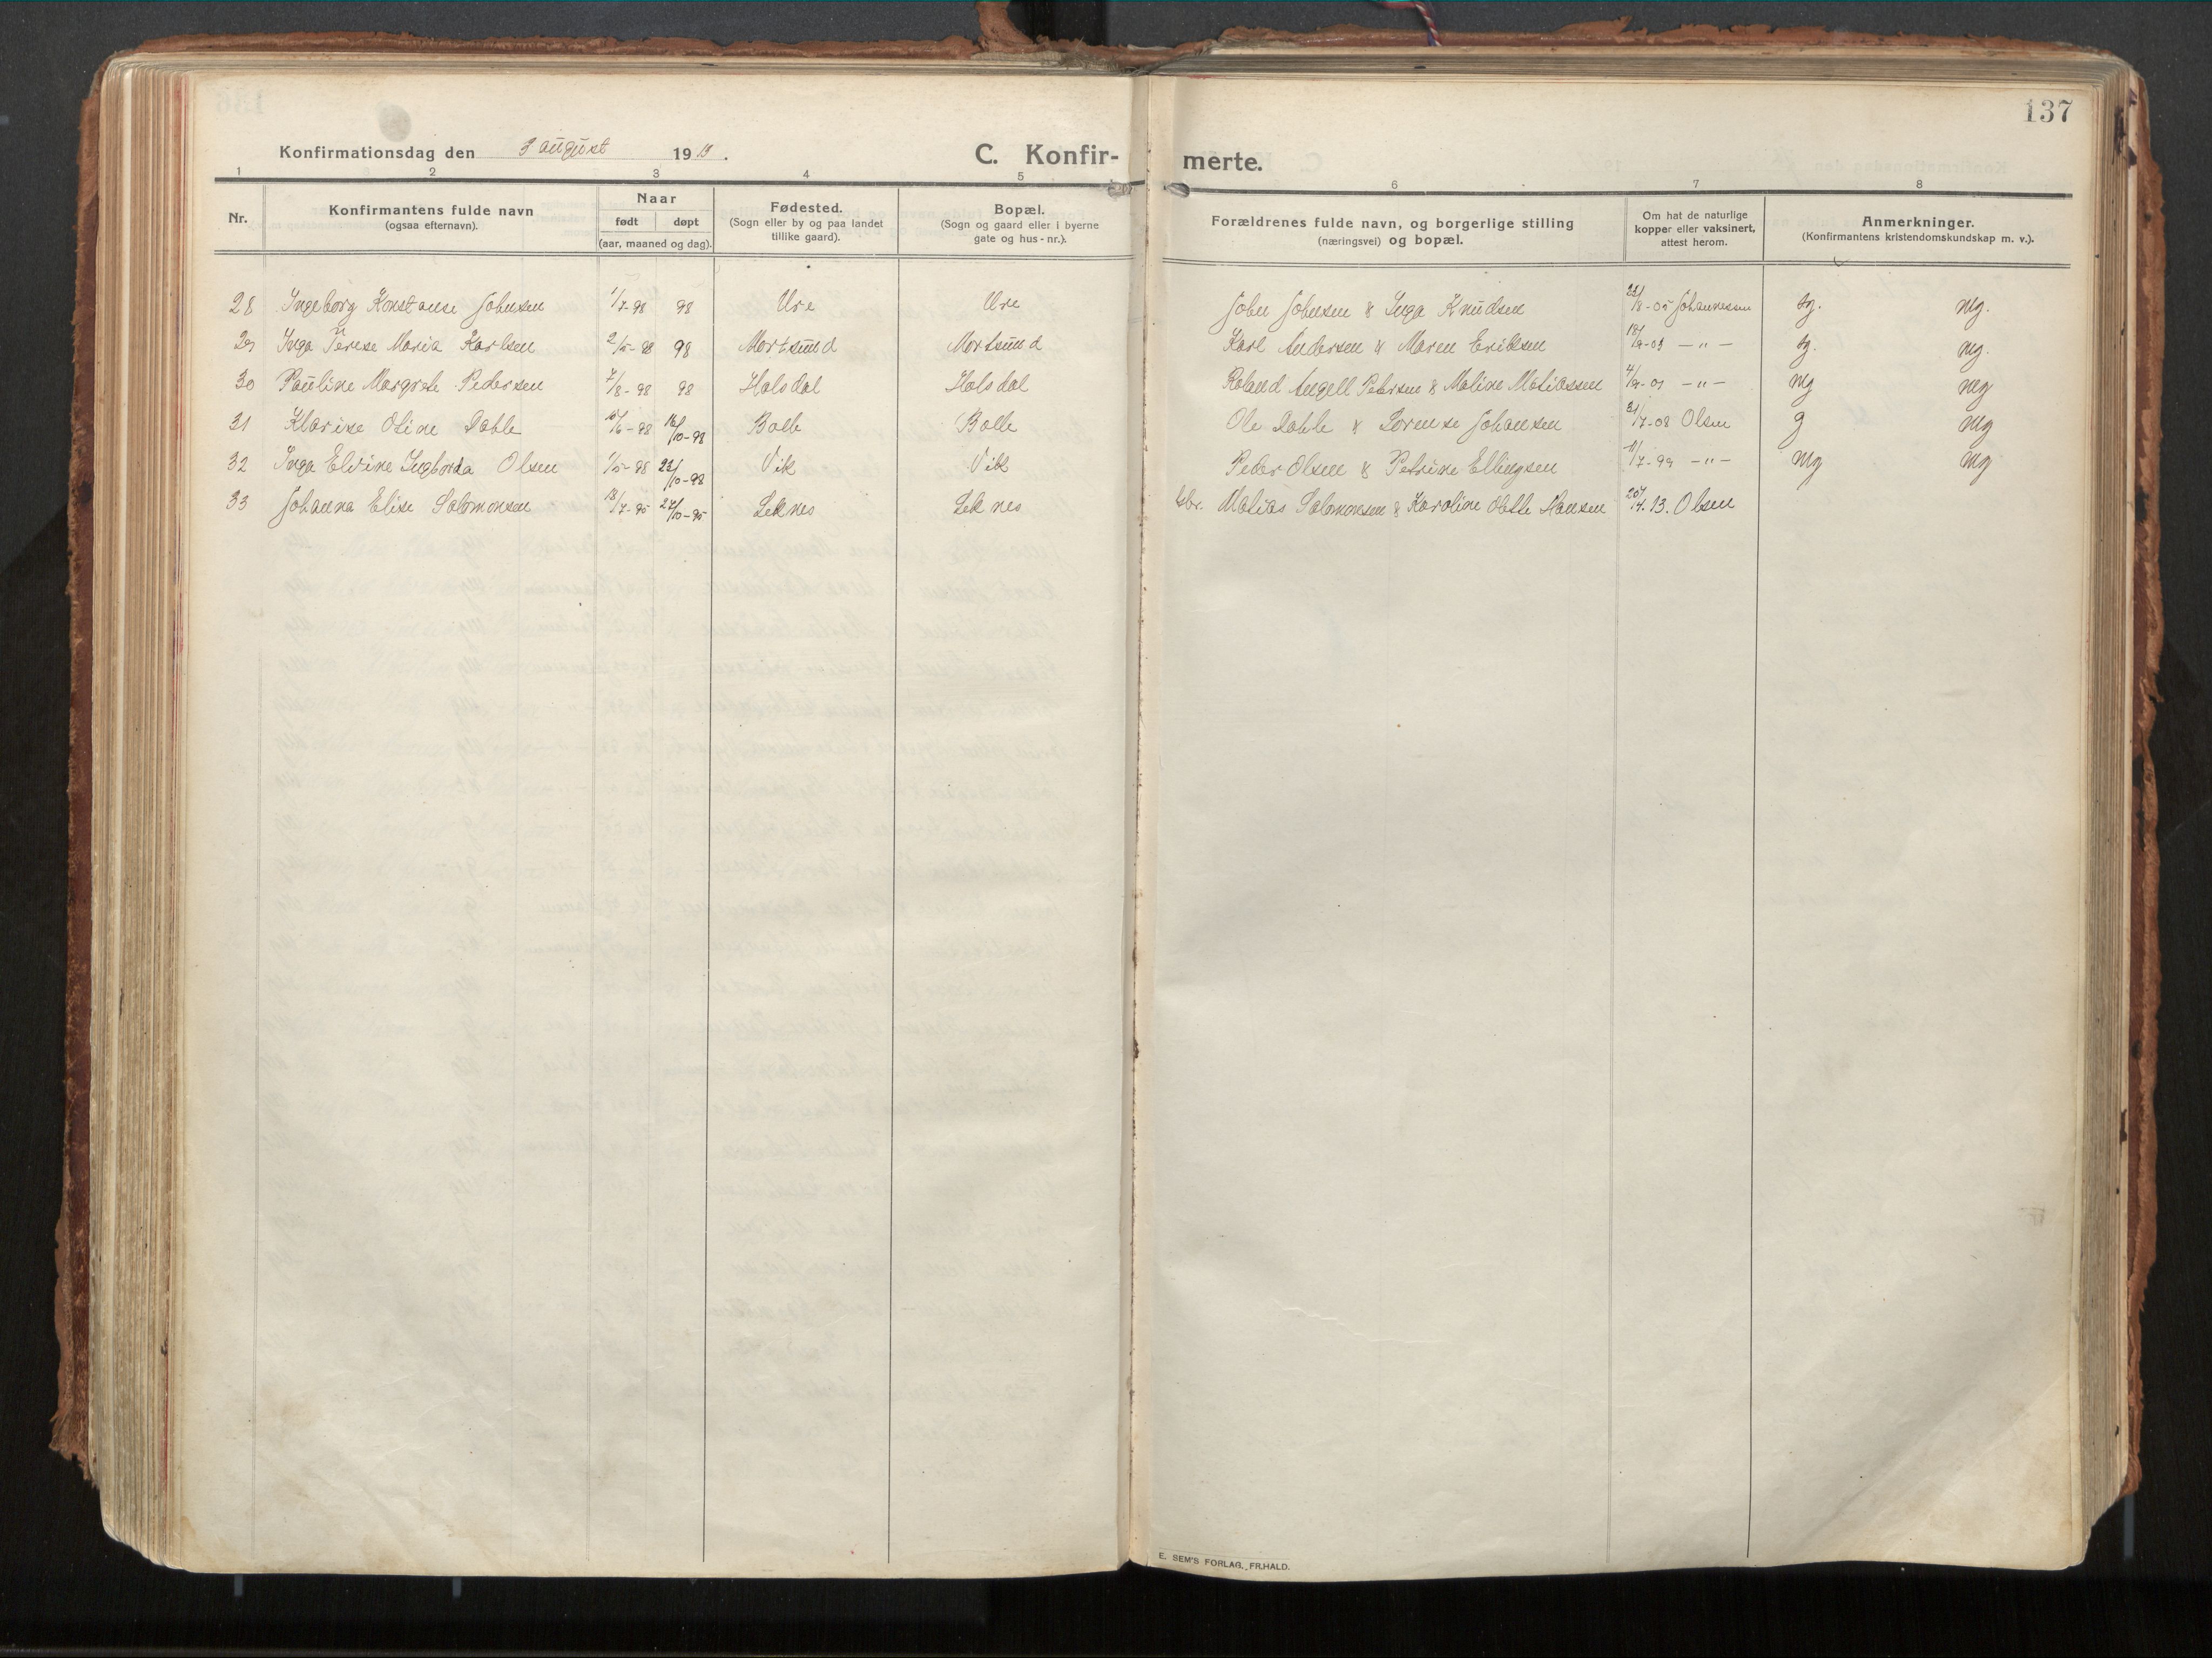 137
Konfirmationsdag den 3 august 1913.
C. Konfir- merte.
1 2 3 4 5 6 7 8
Nr. Konfirmantens fulde navn (ogsaa efternavn). Naar født døpt (aar, maaned og dag). Fødested. (Sogn eller by og paa landet tillike gaard). Bopæl. (Sogn og gaard eller i byerne gate og hus-nr.). Forældrenes fulde navn, og borgerlige stilling (næringsvei) og bopæl. Om hat de naturlige kopper eller vaksinert, attest herom. Anmerkninger. (Konfirmantens kristendomskundskap m. v.).
28 Ingeborg Konstanse Johnsen 1/7-98 98 Ure Ure John Johnsen & Inga Knudsen /8-05 Johannessen tg. mg.
29 Inga Terese Maria Karlsen 2/5-98 98 Mortsund Mortsund Karl Andersen & Maren Eriksen 18/9-03 -"- tg. mg.
30 Pauline Margrete Pedersen 7/8-98 98 Holsdal Holsdal Roland Angell Petersen & Maline Matiassen 4/9-01 -"- mg mg
31 Klarine Oline Dahle 10/6-98 16/10-98 Bolle Bolle Ole Dahle & Lorense Johansen 31/7-08 Olsen g mg
32 Inga Eldine Ingborda Olsen 1/5-98 23/10-98 Vik Vik Peder Olsen & Petrine Ellingsen 11/7-99 -"- mg mg
33 Johanna Elise Salomonsen 18/7-95 27/10-95 Leknes Leknes Matias Salomonsen & Karoline Hansen 20/4.13. Olsen
E. SEM'S FORLAG, FR.HALD.